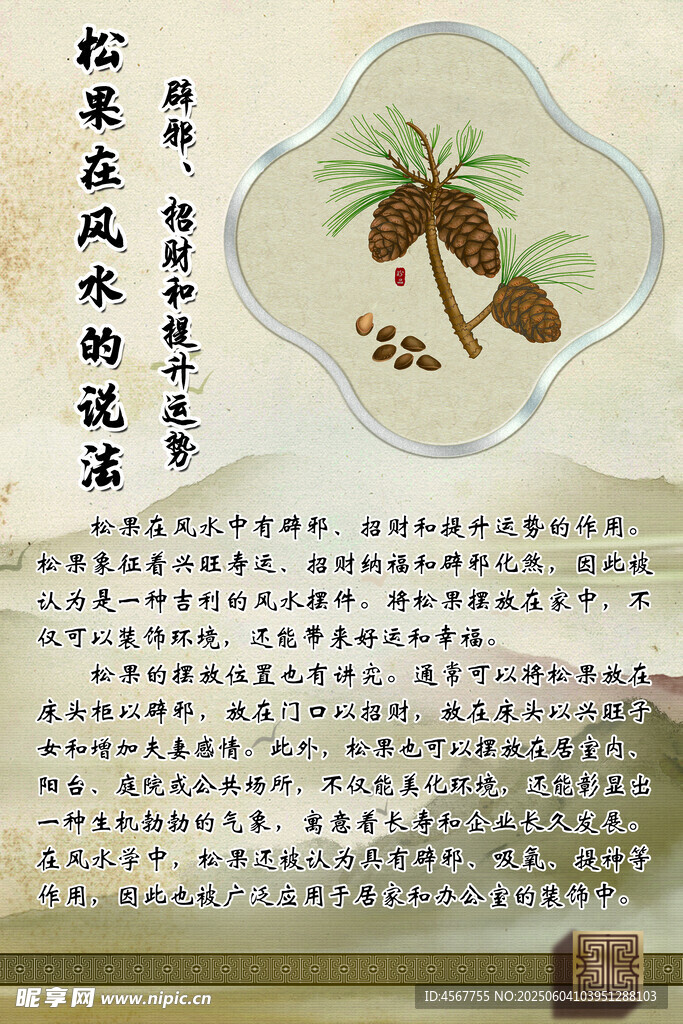 松果在风水的说法
辟邪、招财和提升运势
松果在风水中有辟邪、招财和提升运势的作用。
松果象征着兴旺寿运、招财纳福和辟邪化煞，因此被
认为是一种吉利的风水摆件。将松果摆放在家中，不
仅可以装饰环境，还能带来好运和幸福。
松果的摆放位置也有讲究。通常可以将松果放在
床头柜以辟邪，放在门口以招财，放在床头以兴旺子
女和增加夫妻感情。此外，松果也可以摆放在居室内、
阳台、庭院或公共场所，不仅能美化环境，还能彰显出
一种生机勃勃的气象，寓意着长寿和企业长久发展。
在风水学中，松果还被认为具有辟邪、吸氧、提神等
作用，因此也被广泛应用于居家和办公室的装饰中。
昵享网 www.nipic.cn
ID:4567755 NO:20250604103951288103